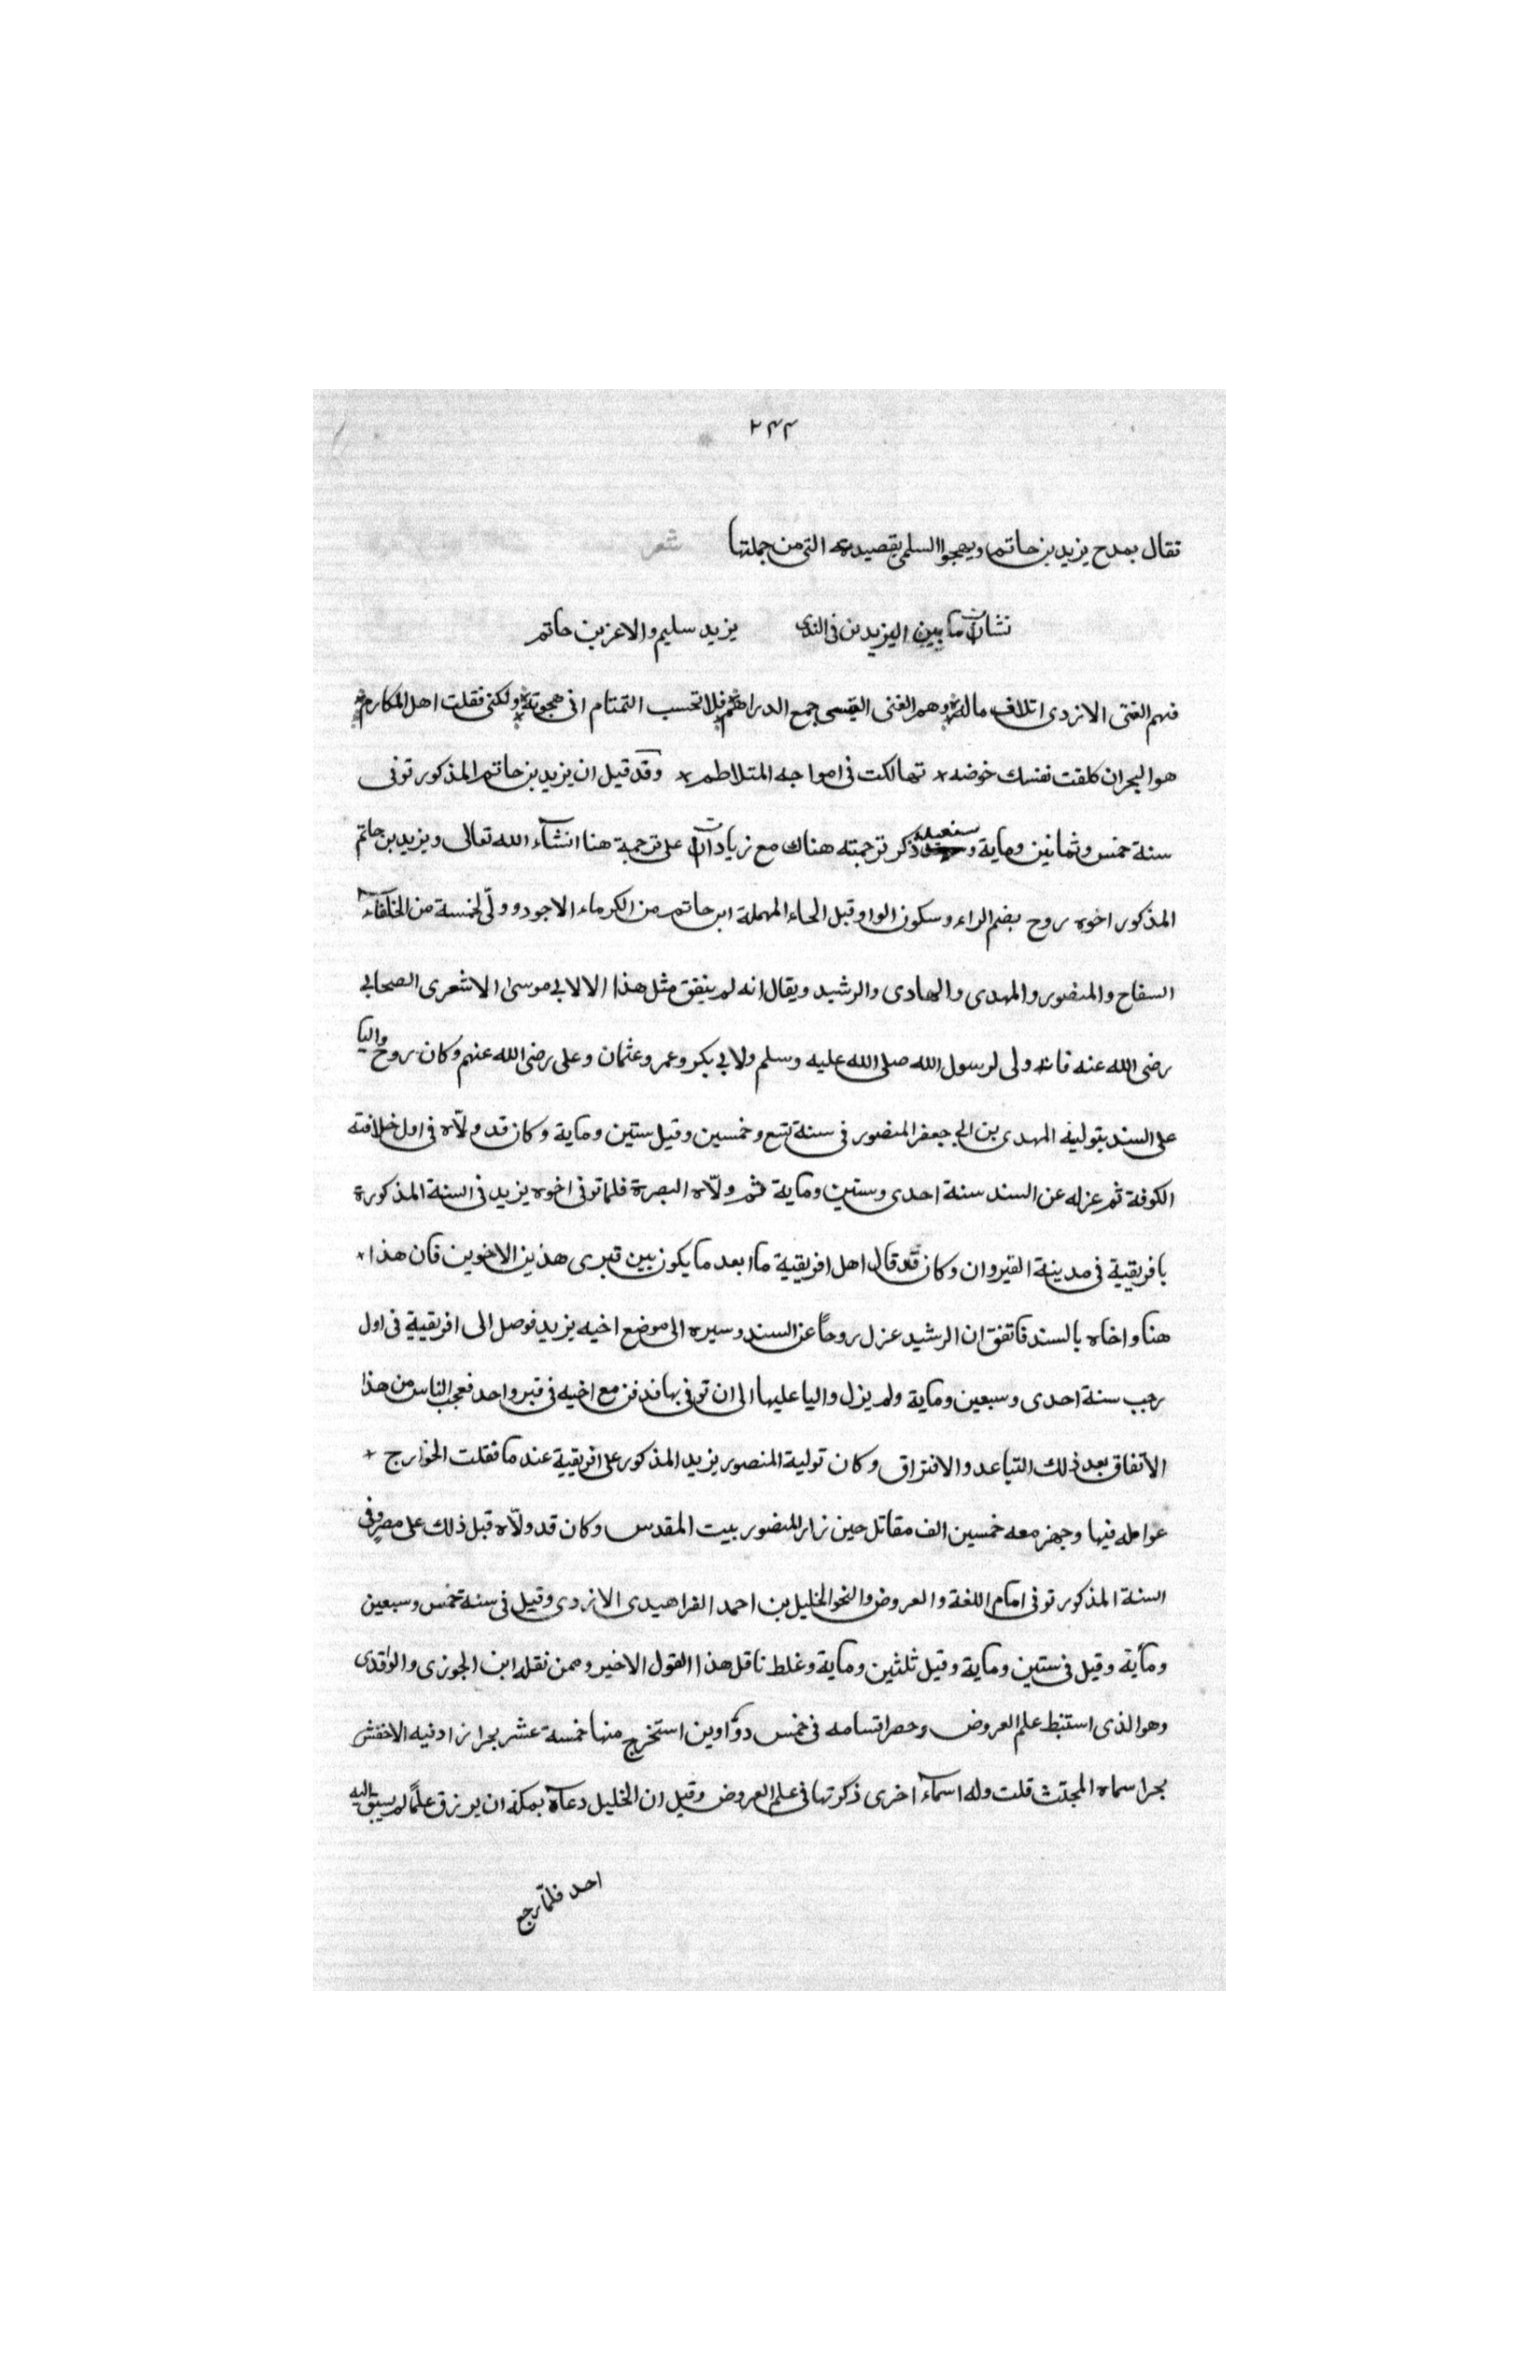 ٢٤٣
فقال يمدح يزيد بن حاتم ويهجوا السلمي بقصيدته التي من جملتها شعر
لشتان ما بين اليزيدين في الندى يزيد سليم والاغر بن حاتم
فهم الفتى الازدى اتلاف ماله وهم الفتى القيسى جمع الدراهم فلا تحسب التمتام انى هجوته ولكنى فضلت اهل المكارم
هو البحر ان كلفت نفسك خوضه * تهالكت فى امواجه المتلاطم * وقد قيل ان يزيد بن حاتم المذكور توفى
سنة خمس وثمانين وماية وسنعيد ذكر ترجمته هناك مع زيادات على ترجمة هنا انشآء الله تعالى ويزيد بن حاتم
المذكور اخوه روح بضم الراء وسكون الواو قبل الحاء المهملة ابن حاتم من الكرماء الاجود وولّى لخمسة من الخلفآء
السفاح والمنصور والمهدى والهادى والرشيد ويقال انه لم يتفق مثل هذا الا لابي موسى الاشعرى الصحابي
رضى الله عنه فانه ولى لرسول الله صلى الله عليه وسلم ولابي بكر وعمر وعثمان وعلى رضى الله عنهم وكان روح واليا
على السند بتولية المهدى بن ابى جعفر المنصور فى سنة تسع وخمسين وقيل ستين وماية وكان قد ولّاه فى اول خلافته
الكوفة ثم عزله عن السند سنة احدى وستين وماية ثم ولّاه البصرة فلما توفى اخوه يزيد فى السنة المذكورة
بافريقية فى مدينة القيروان وكان قد قال اهل افريقية ما ابعد ما يكون بين قبرى هذين الاخوين فان هذا *
هنا واخاه بالسند فاتفق ان الرشيد عزل روحاً عن السند وسيره الى موضع اخيه يزيد فوصل الى افريقية فى اول
رجب سنة احدى وسبعين وماية ولم يزل واليا عليها الى ان توفى بها فدفن مع اخيه فى قبر واحد فعجب الناس من هذا
الاتفاق بعد ذلك التباعد والافتراق وكان تولية المنصور يزيد المذكور على افريقية عند ما قتلت الخوارج *
عوامله فيها وجهز معه خمسين الف مقاتل حين زار المنصور بيت المقدس وكان قد ولّاه قبل ذلك على مصر وفى
السنة المذكور توفى امام اللغة والعروض والنحو الخليل بن احمد الفراهيدى الازدى وقيل فى سنة خمس وسبعين
ومأية وقيل فى ستين وماية وقيل ثلثين وماية وغلط ناقل هذا القول الاخير وممن نقله ابن الجوزى والواقدى
وهو الذى استنبط علم العروض وحصر اقسامه فى خمس دوآوين استخرج منها خمسة عشر بحرا زاد فيه الاخفش
بحرا سماه المجتث قلت وله اسمآء اخرى ذكرتها فى علم العروض وقيل ان الخليل دعآه بمكة ان يرزق علماً لم يسبق اليه
احد فلمّا رجع